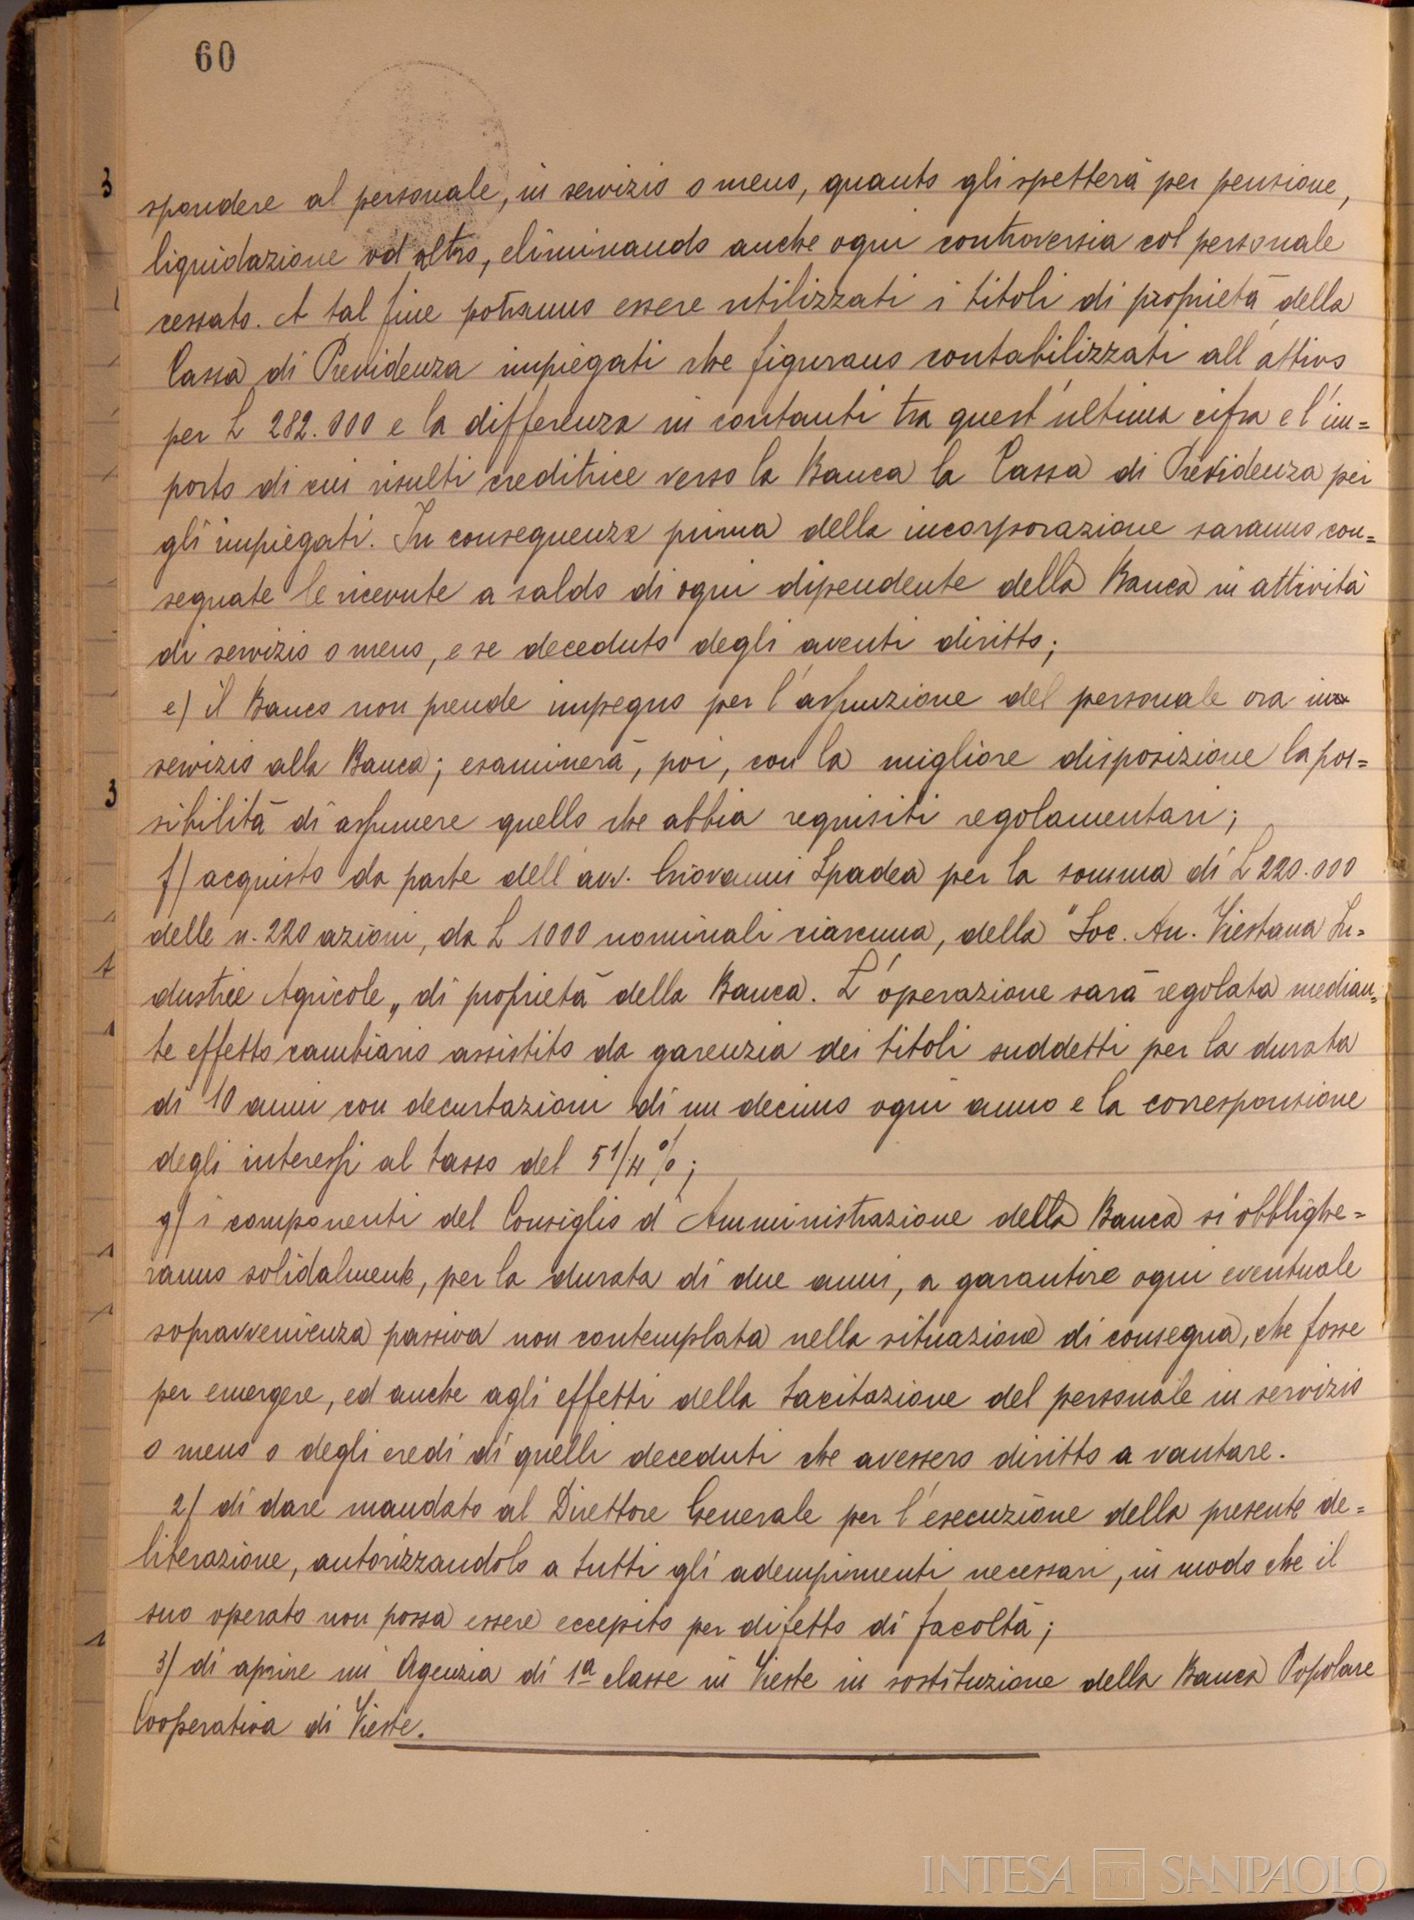 60
spondere al personale, in servizio o meno, quanto gli spetterà per pensione,
liquidazione od altro, eliminando anche ogni controversia col personale
cessato. A tal fine potranno essere utilizzati i titoli di proprietà della
Cassa di Previdenza impiegati che figurano contabilizzati all'attivo
per L 282.000 e la differenza in contanti tra quest'ultima cifra e l'im=
porto di cui risulti creditrice verso la Banca la Cassa di Previdenza per
gli impiegati. In conseguenza prima della incorporazione saranno con=
segnate le ricevute a saldo di ogni dipendente della Banca in attività
di servizio o meno, e se deceduto degli aventi diritto;
e) il Banco non prende impegno per l'assunzione del personale ora in
servizio alla Banca; esaminerà, poi, con la migliore disposizione la pos=
sibilità di assumere quello che abbia requisiti regolamentari;
f) acquisto da parte dell'avv. Giovanni Spadea per la somma di L 220.000
delle n. 220 azioni, da L 1000 nominali ciascuna, della "Soc. An. Viestana In=
dustrie Agricole„ di proprietà della Banca. L'operazione sarà regolata median=
te effetto cambiario assistito da garenzia dei titoli suddetti per la durata
di 10 anni con decurtazioni di un decimo ogni anno e la corresponsione
degli interessi al tasso del 5 1/4 %;
g) i componenti del Consiglio d'Amministrazione della Banca si obblighe=
ranno solidalmente, per la durata di due anni, a garantire ogni eventuale
sopravvenienza passiva non contemplata nella situazione di consegna, che fosse
per emergere, ed anche agli effetti della tacitazione del personale in servizio
o meno o degli eredi di quelli deceduti che avessero diritto a vantare.
2) di dare mandato al Direttore Generale per l'esecuzione della presente de=
liberazione, autorizzandolo a tutti gli adempimenti necessari, in modo che il
suo operato non possa essere eccepito per difetto di facoltà;
3) di aprire un'Agenzia di 1ª classe in Vieste in sostituzione della Banca Popolare
Cooperativa di Vieste.
INTESA SANPAOLO